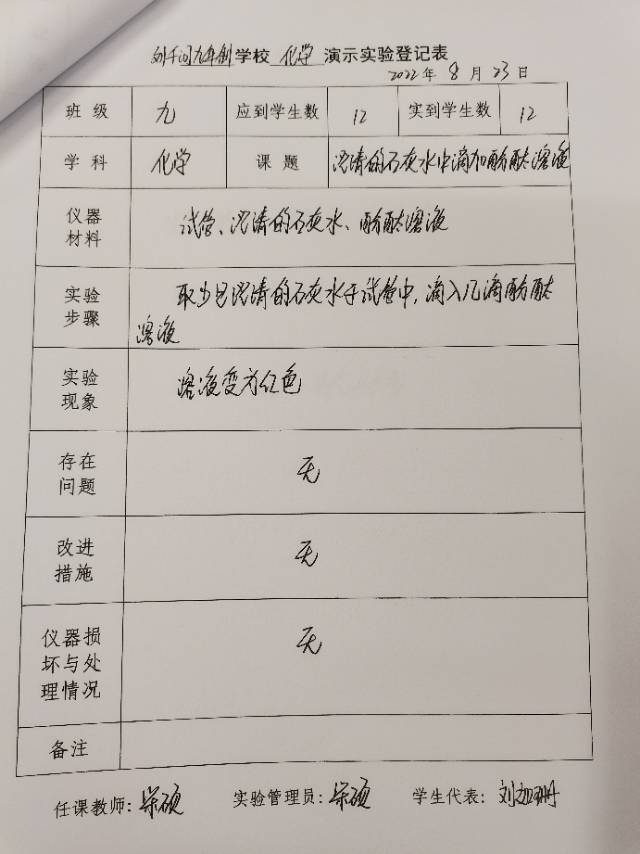 九年制学校 化学 演示实验登记表
2022年 8月 23日
班级 九 应到学生数 12 实到学生数 12
学科 化学 课题 澄清的石灰水中滴加酚酞溶液
仪器材料 试管、澄清的石灰水、酚酞溶液
实验步骤 取少量澄清的石灰水于试管中,滴入几滴酚酞
溶液
实验现象 溶液变为红色
存在问题 无
改进措施 无
仪器损坏与处理情况 无
备注
任课教师: 硕 实验管理员: 硕 学生代表: 刘珊